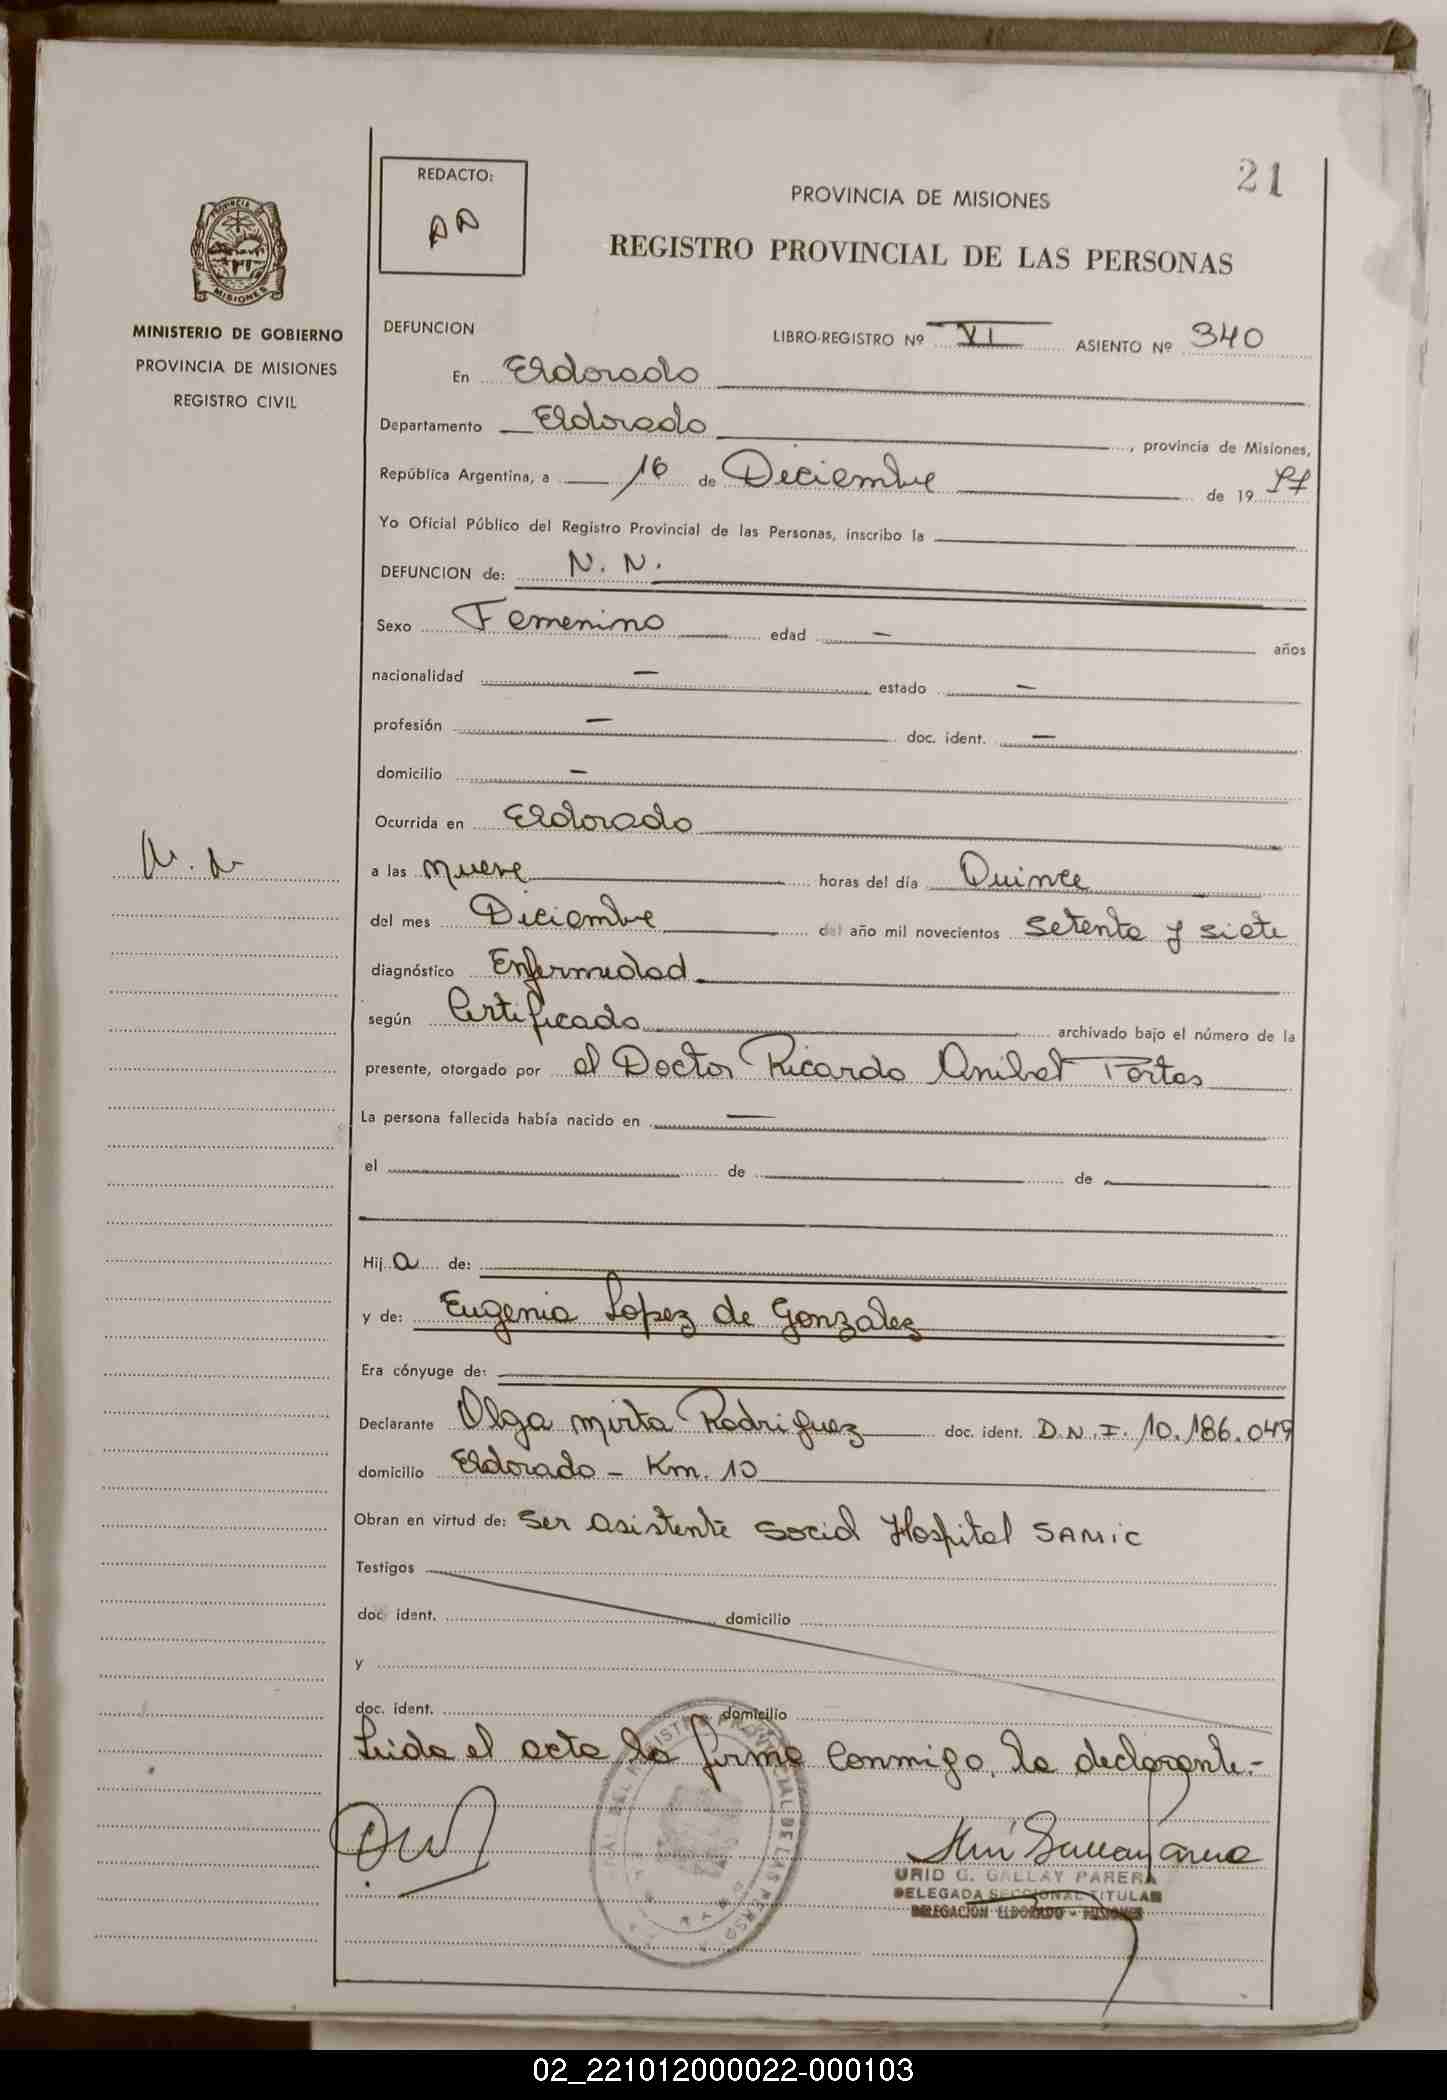 21
REDACTO:
AA
PROVINCIA DE MISIONES
REGISTRO PROVINCIAL DE LAS PERSONAS
PROVINCIA DE
MISIONES
MINISTERIO DE GOBIERNO
PROVINCIA DE MISIONES
REGISTRO CIVIL
DEFUNCION LIBRO-REGISTRO Nº VI ASIENTO Nº 340
En Eldorado
Departamento Eldorado, provincia de Misiones,
República Argentina, a 16 de Diciembre de 19 77
Yo Oficial Público del Registro Provincial de las Personas, inscribo la
DEFUNCION de: N. N.
Sexo Femenino edad — años
nacionalidad — estado —
profesión — doc. ident. —
domicilio —
Ocurrida en Eldorado
N. N
a las nueve horas del día Quince
del mes Diciembre del año mil novecientos setenta y siete
diagnóstico Enfermedad
según Certificado archivado bajo el número de la
presente, otorgado por el Doctor Ricardo Anibal Portas
La persona fallecida había nacido en —
el de de
Hij a de:
y de: Eugenia Lopez de Gonzalez
Era cónyuge de:
Declarante Olga mirta Rodriguez doc. ident. D.N.I. 10.186.049
domicilio Eldorado - Km. 10
Obran en virtud de: ser asistente social Hospital SAMIC
Testigos
doc ident. domicilio
y
doc. ident. domicilio
Leida el acta la firma conmigo, la declarante.-
URID G. GALLAY PARERA
DELEGADA SECCIONAL TITULAR
DELEGACION ELDORADO - MISIONES
02_221012000022-000103